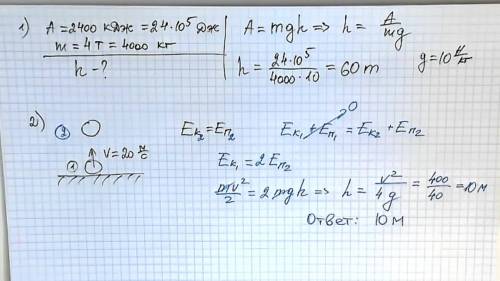 1) A = 2400 кДж = 24·10⁵ Дж
m = 4 т = 4000 кг
h - ?
A = mgh => h = A/mg
h = 24·10⁵/4000·10 = 60 m
g = 10 Н/кг
2)
② 
① V = 20 м/с
Eк₂ = Eп₂
Eк₁ + Eп₁ 0 = Eк₂ + Eп₂
Eк₁ = 2Eп₂
mv²/2 = 2mgh => h = v²/4g = 400/40 = 10 м
Ответ: 10 м